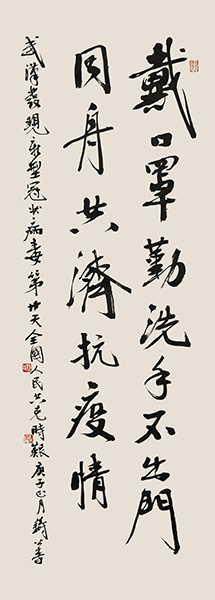 戴口罩勤洗手不出門
同舟共濟抗疫情
武漢發現新型冠狀病毒第廿天全國人民共克時艱庚子正月